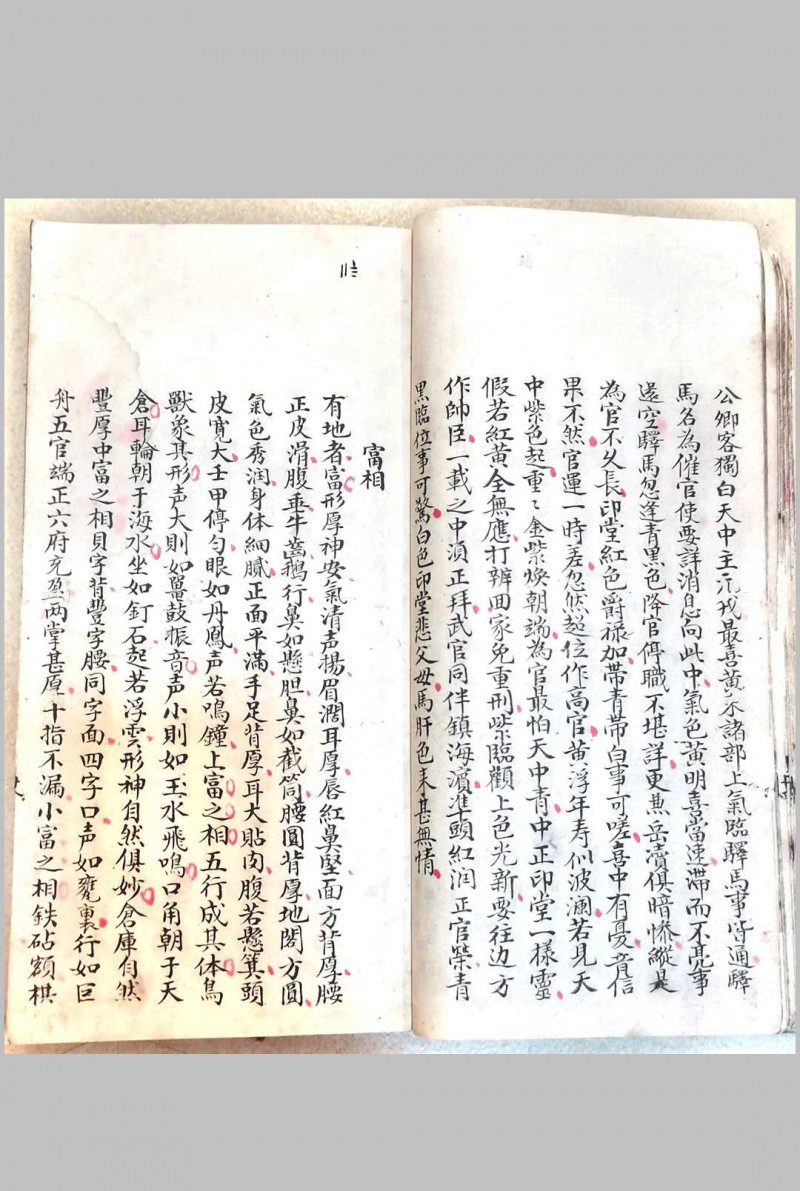 公卿客獨白天中主元戎最喜黃禾諸部上氣臨驛馬事皆通驛
馬名為催官使要詳消息向此中氣色黃明喜當速滯而不亮事
遠空驛馬忽逢青黑色降官停職不堪詳更無岳瀆俱暗慘縱是
為官不久長印堂紅色爵祿加帶青帶白事可嗟喜中有憂音信
果不然官運一時差忽然超位作高官黃浮年寿似波瀾若見天
中紫色起重〻金紫煥朝端為官最怕天中青中正印堂一樣靈
假若紅黃全無應打辦回家免重刑紫臨顴上色光新要往边方
作帥臣一載之中須正拜武官同伴鎮海濵準頭紅润正官榮青
黑臨位事可驚白色印堂悲父母馬肝色来甚無情
富相
有地者富形厚神安氣清声揚眉濶耳厚唇紅鼻堅面方背厚腰
正皮滑腹垂牛齒鵝行鼻如懸胆鼻如截筒腰圓背厚地閣方圓
氣色秀润身体細膩正面平滿手足背厚耳大貼肉腹若懸箕頭
皮寬大壬甲停匀眼如丹鳳声若鳴鐘上富之相五行成其体鳥
獣象其形声大則如鼍鼓振音声小則如玉水飛鳴口角朝于天
倉耳輪朝于海水坐如釘石起若浮雲形神自然俱妙倉庫自然
豐厚中富之相貝字背豐字腰同字面四字口声如甕裏行如巨
舟五官端正六府充盈两掌甚厚十指不漏小富之相鉄砧額棋